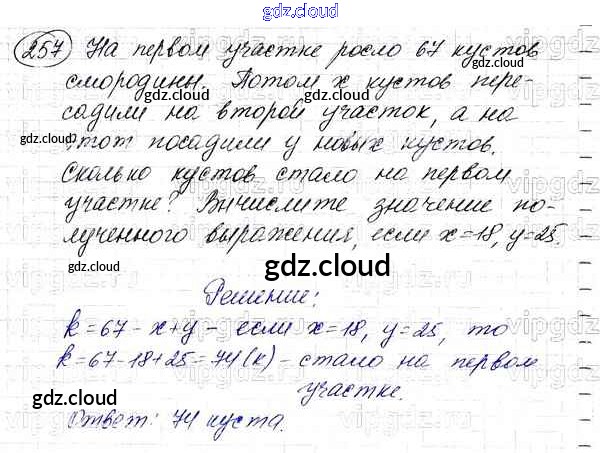 gdz.cloud
257 На первом участке росло 67 кустов
смородины. Потом x кустов пере-
садили на второй участок, а на
этот посадили y новых кустов.
Сколько кустов стало на первом
участке? Вычислите значение по-
лученного выражения, если x=18, y=25.
Решение:
k=67-x+y - если x=18, y=25, то
k=67-18+25=74(к) - стало на первом
участке.
Ответ: 74 куста.
gdz.cloud
gdz.cloud
gdz.cloud
gdz.cloud
gdz.cloud
gdz.cloud
gdz.cloud
gdz.cloud
gdz.cloud